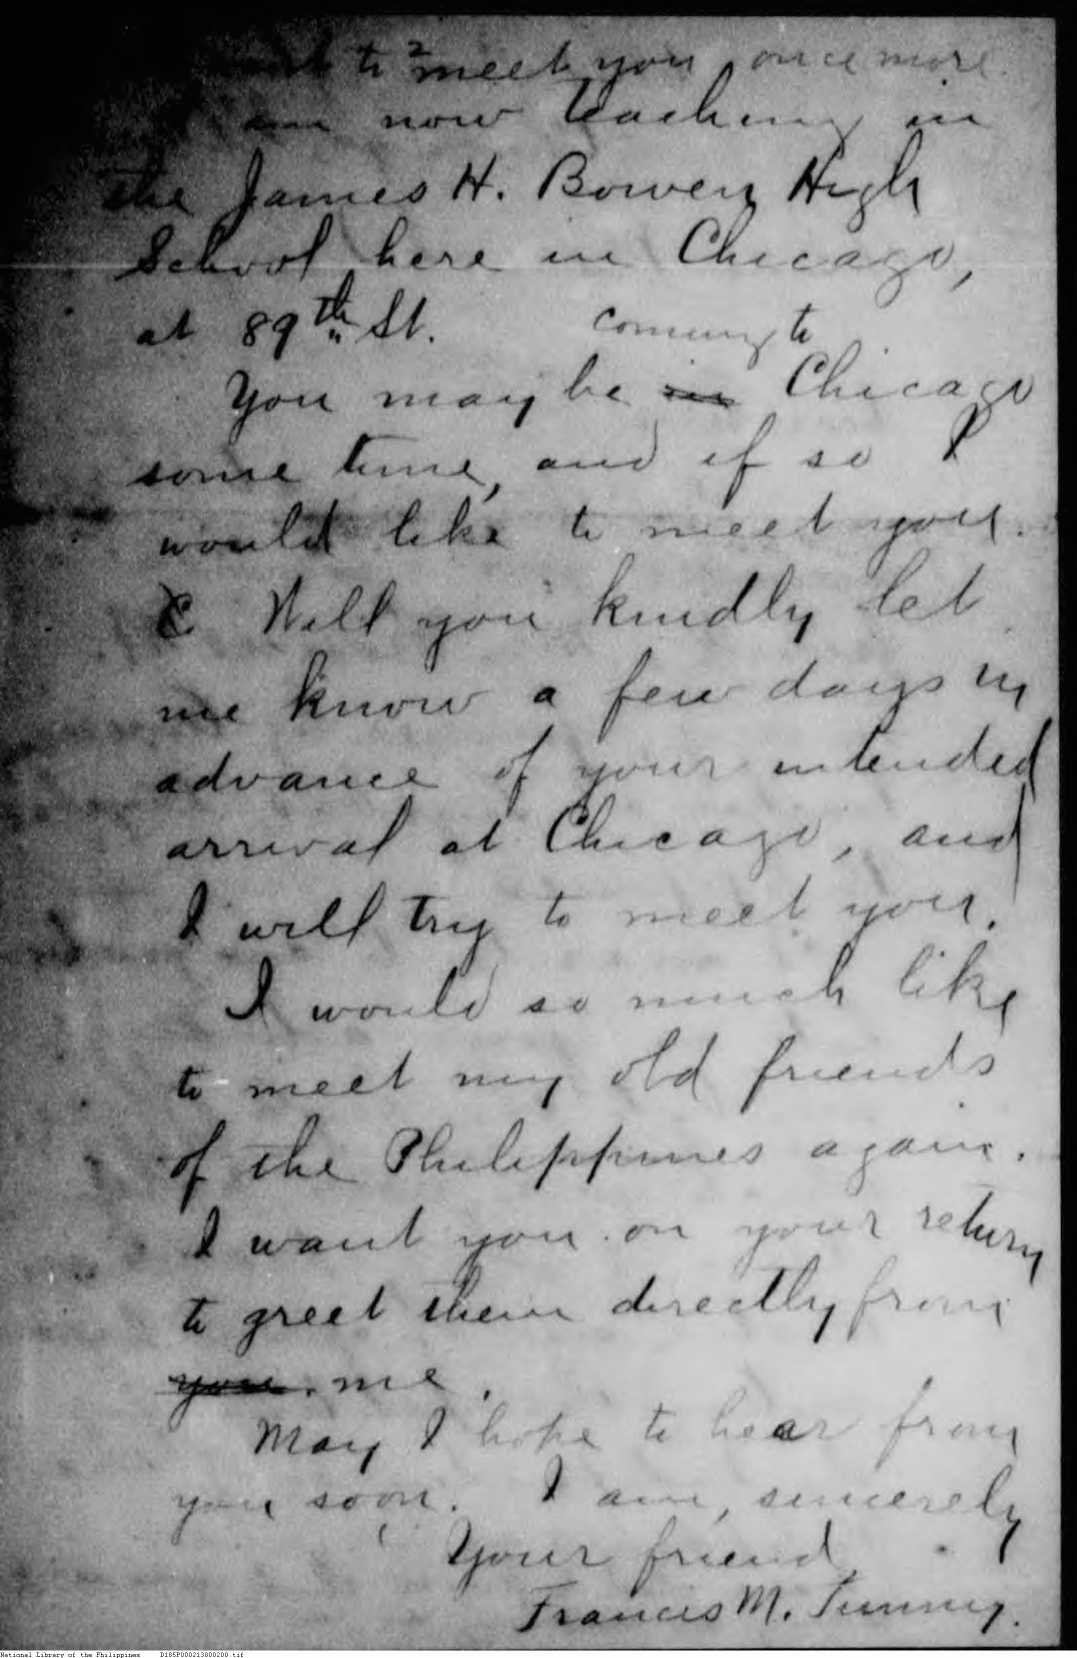 2
to meet you once more.
am now teaching in
the James H. Bowen High
School here in Chicago,
at 89th St.
coming to
You may be in Chicago
some time, and if so I
would like to meet you.
Will you kindly let
me know a few days in
advance of your intended
arrival at Chicago, and
I will try to meet you.
I would so much like
to meet my old friends
of the Philippines again.
I want you on your return
to greet them directly from
you. me.
May I hope to hear from
you soon. I am, sincerely
Your friend,
Francis M.
National Library of the Philippines D185P000213800200.tif